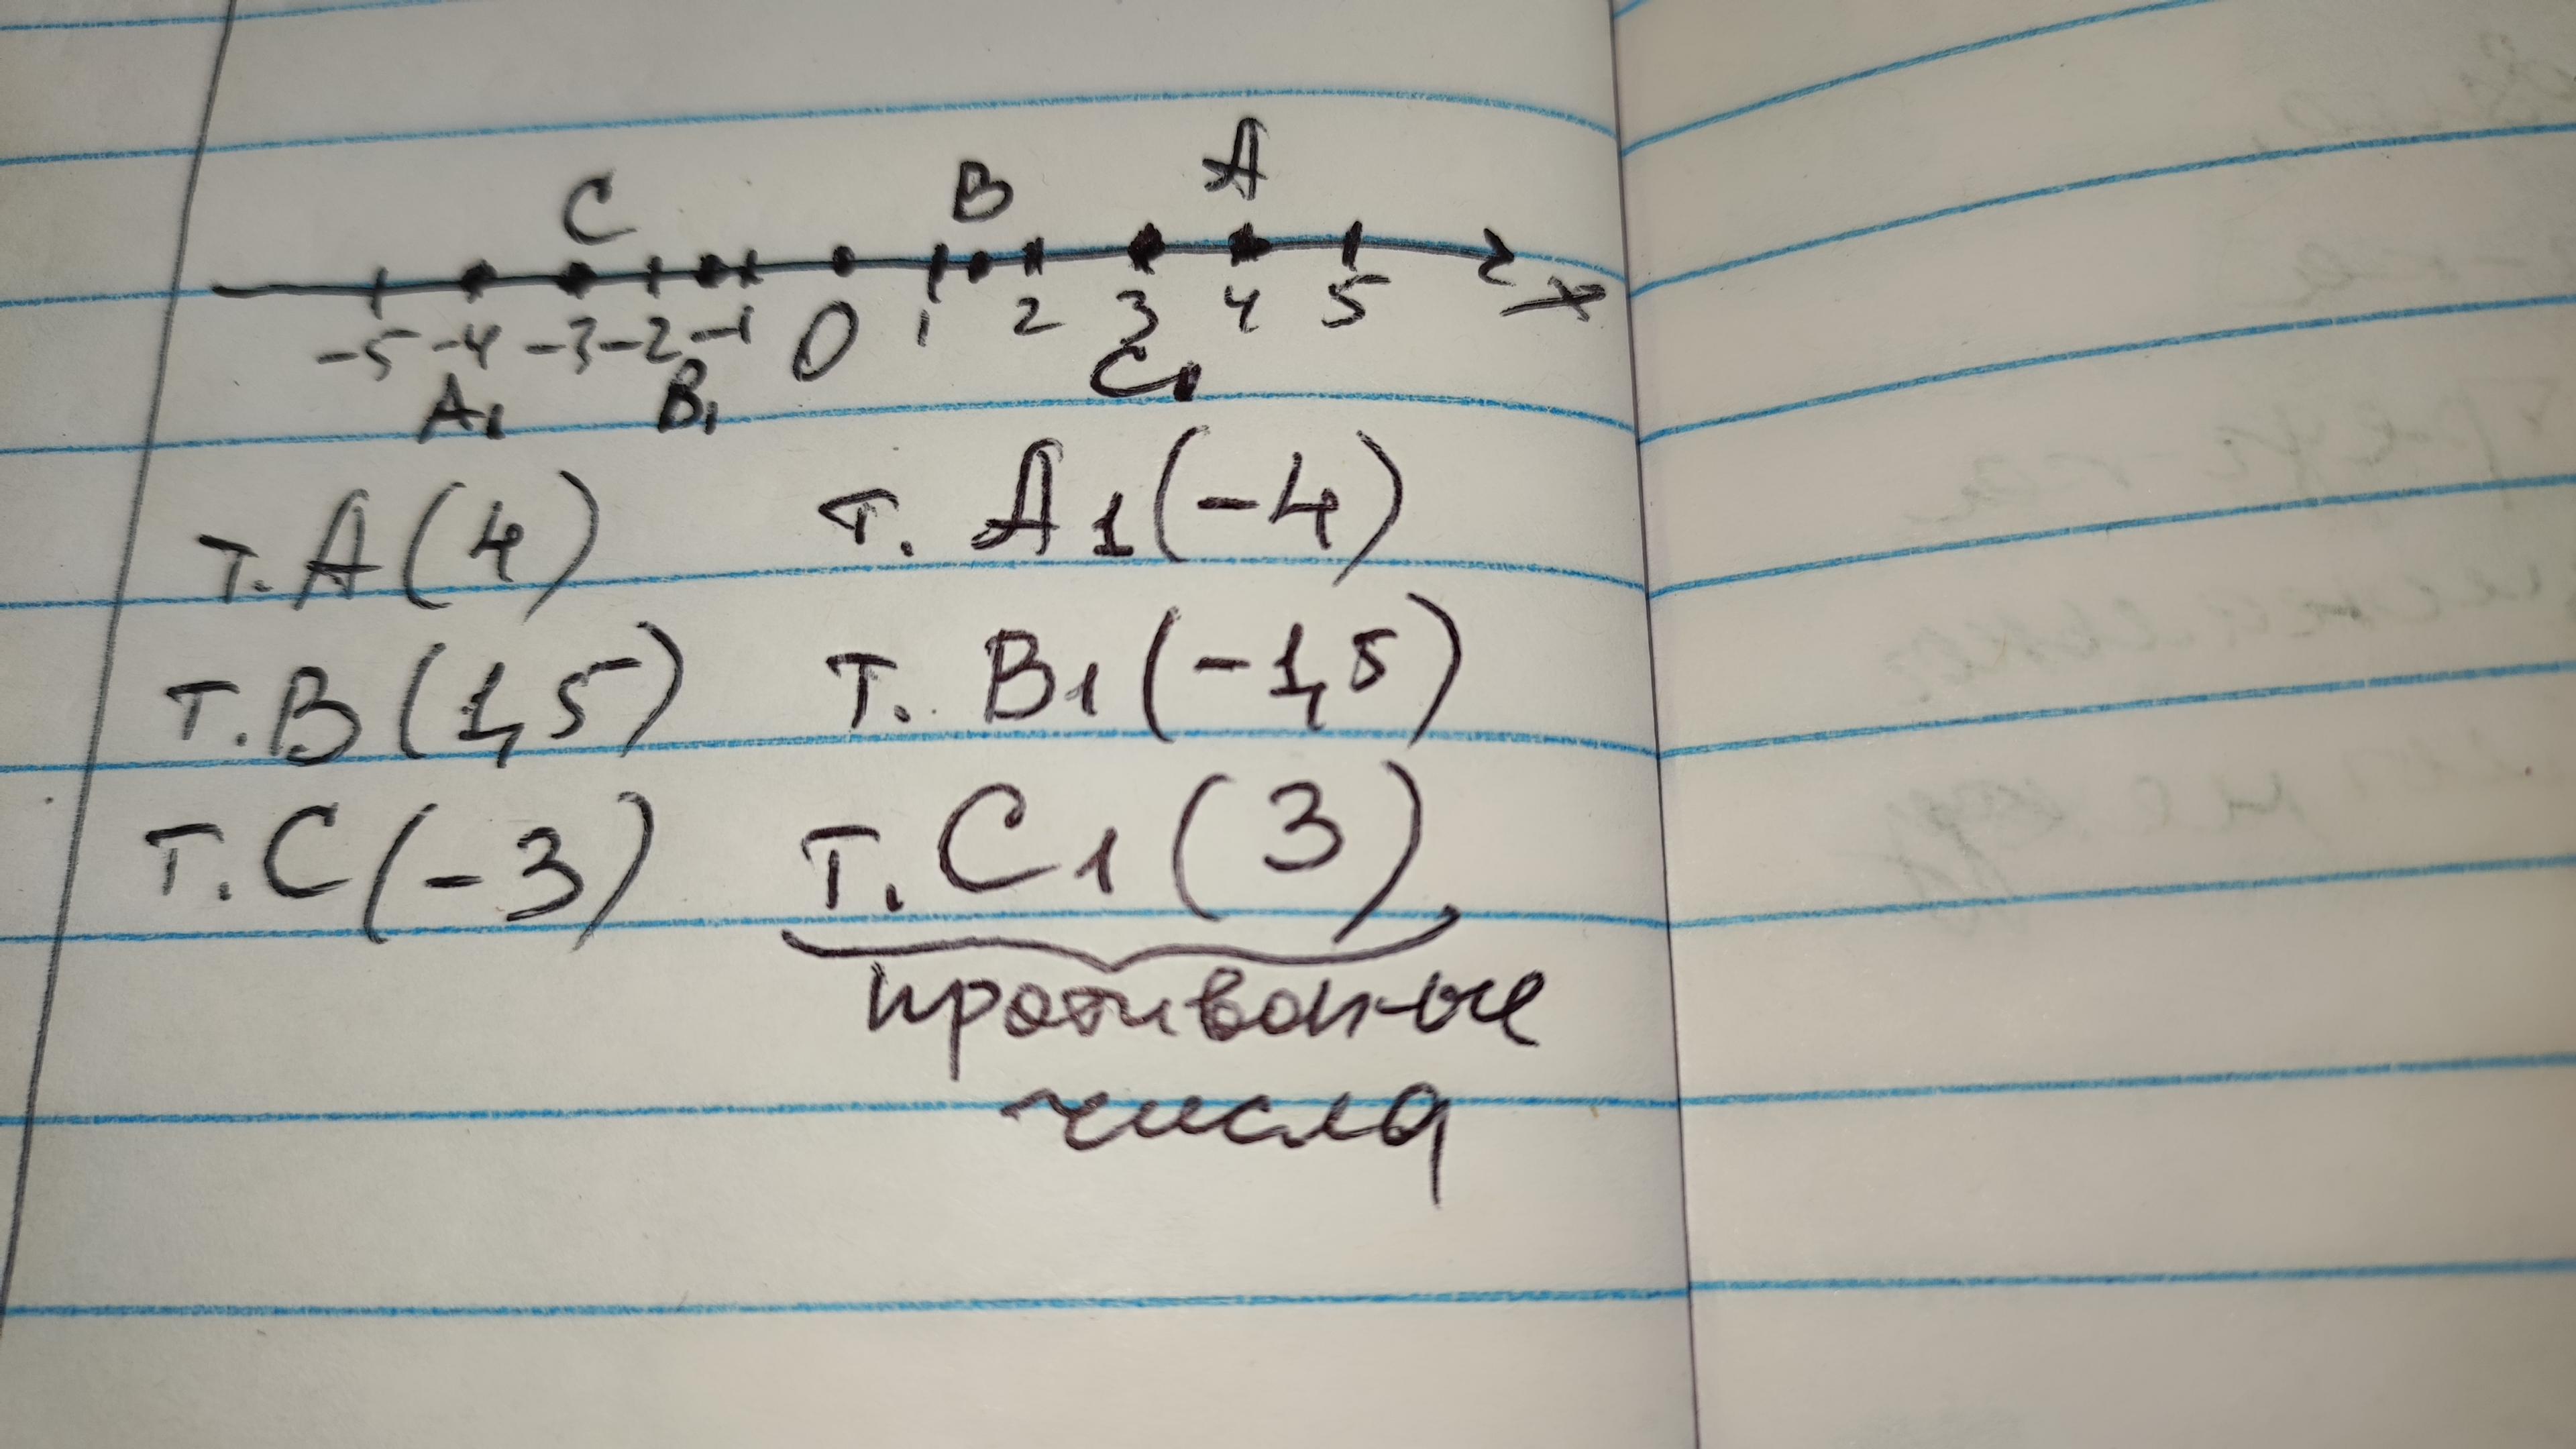 C B A
-5 -4 -3 -2 -1 0 1 2 3 4 5 x
A₁ B₁ C₁
т. A(4) т. A1(-4)
т. B(1,5) т. B1(-1,5)
т. C(-3) т. C1(3)
противоп-ые
числа